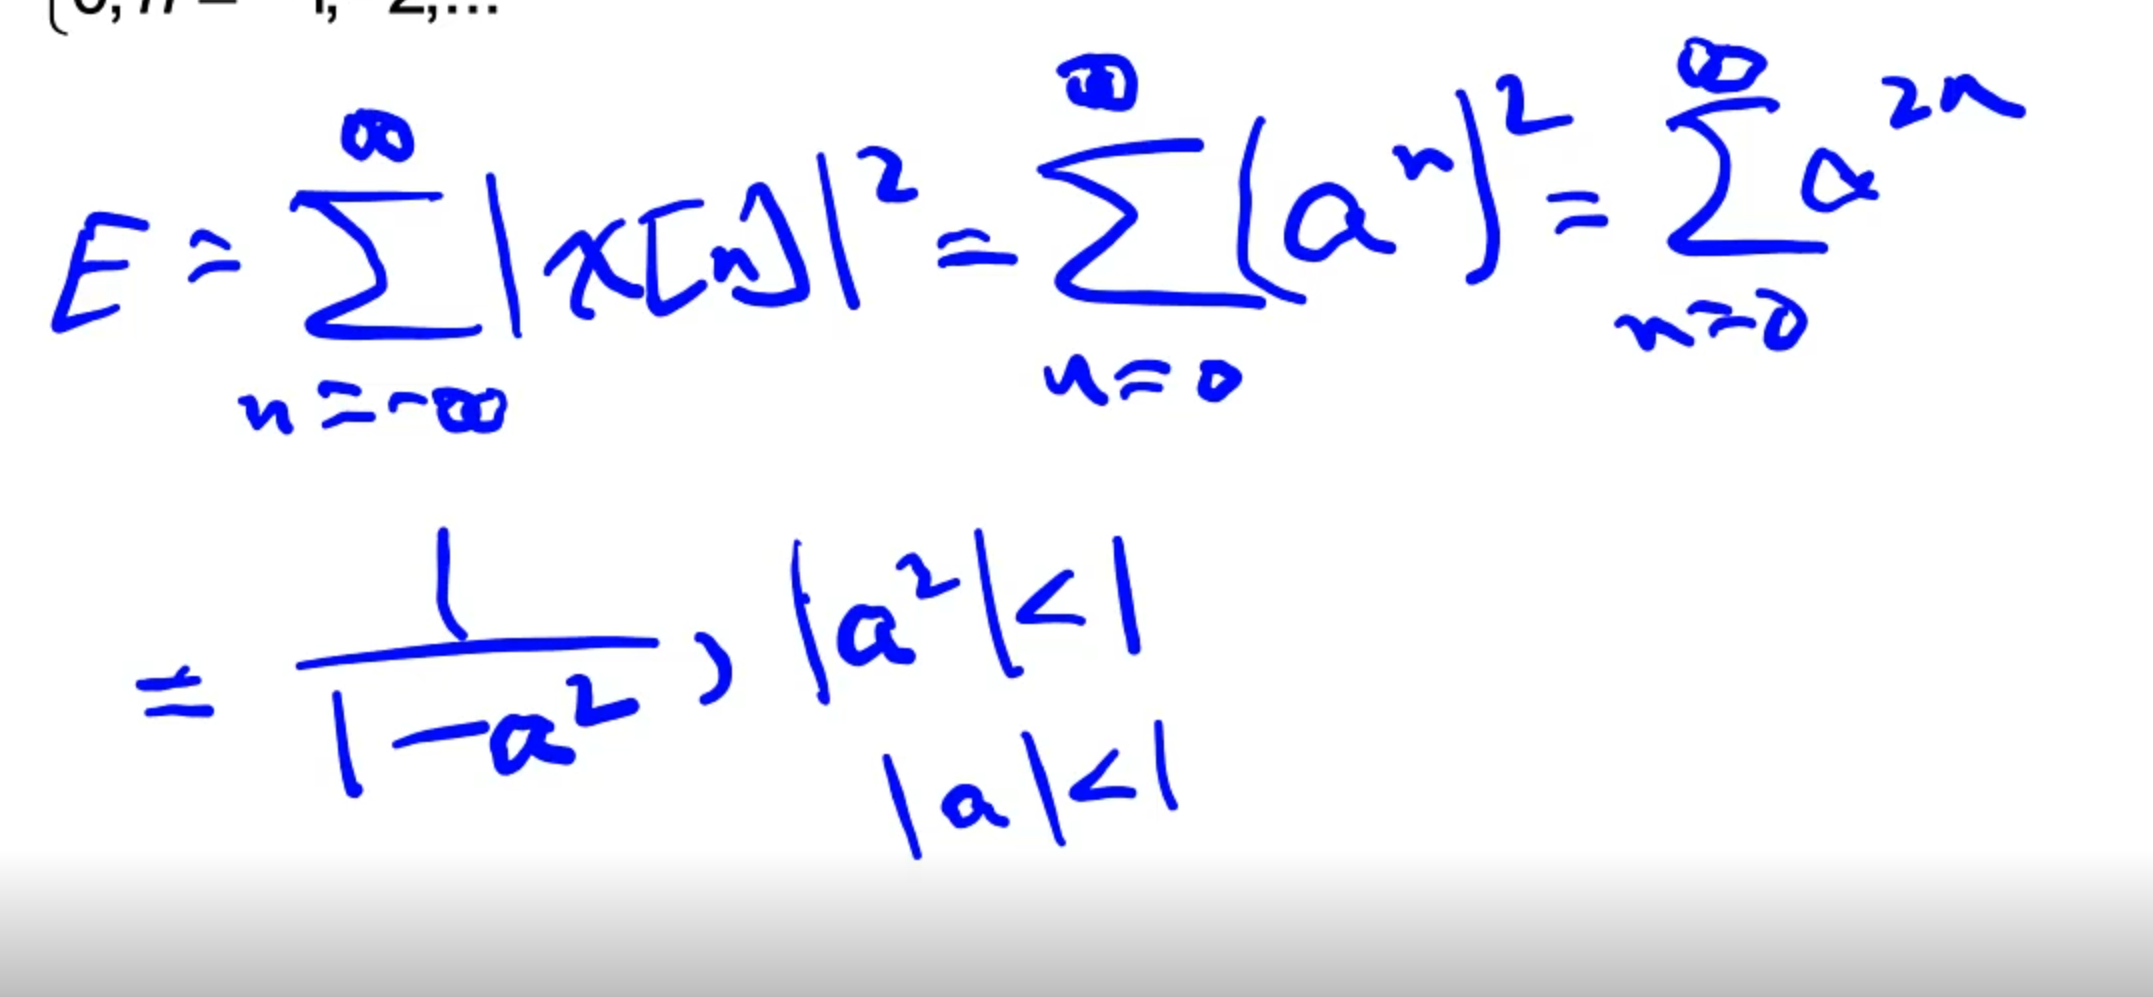 0, n = -1, -2,...
E = ∑_{n=-∞}^{∞} |x[n]|² = ∑_{n=0}^{∞} (aⁿ)² = ∑_{n=0}^{∞} a²ⁿ
= 1/(1-a²), |a²|<1
|a|<1